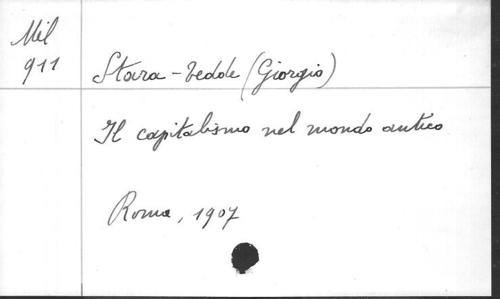 Mil
911
Stara-Tedde (Giorgio)
Il capitalismo nel mondo antico
Roma, 1907